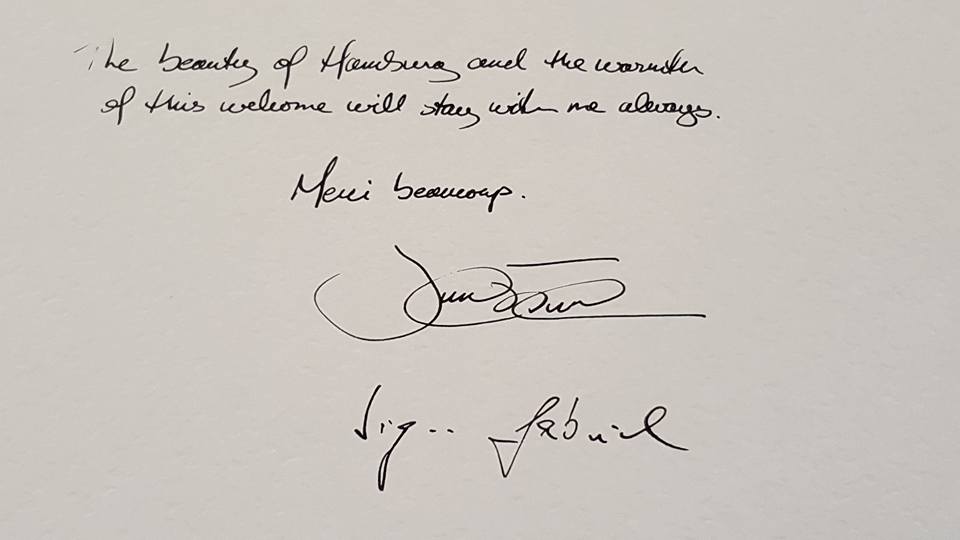 The beauty of Hamburg and the warmth
of this welcome will stay with me always.
Merci beaucoup.
Gabriel